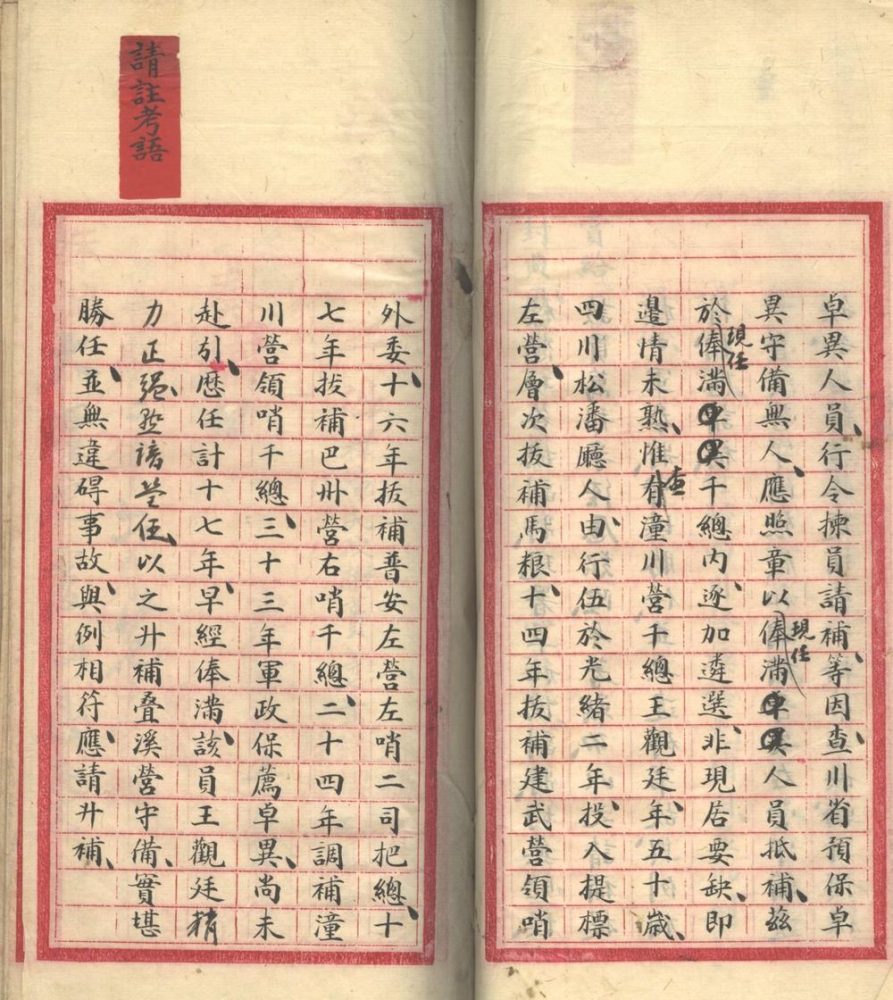 卓異人員、行令揀員請補、等因查、川省預保卓
異守備無人、應照章以俸滿卓異人員抵補、茲
現任
於俸滿卓異千總內、逐加遴選、非現居要缺、即
現任
邊情未熟、惟有潼川營千總王觀廷、年五十歲、
查
四川松潘廳人、由行伍於光緒二年、投入提標
左營、層次拔補馬粮、十四年拔補建武營領哨
請註考語
外委、十六年拔補普安左營左哨二司把總、十
七年拔補巴州營右哨千總、二十四年調補潼
川營領哨千總、三十三年軍政保薦卓異、尚未
赴引、歷任計十七年、早經俸滿、該員王觀廷精
力正強、以之升補疊溪營守備、實堪
勝任、並無違碍事故、與例相符、應請升補、